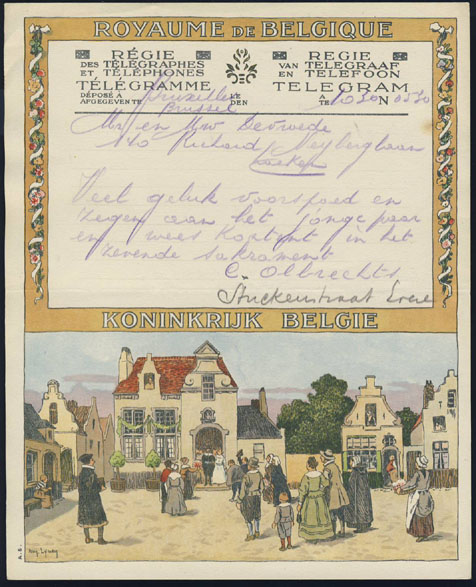 ROYAUME DE BELGIQUE
RÉGIE
DES TÉLÉGRAPHES
ET TÉLÉPHONES
TÉLÉGRAMME
DÉPOSÉ À
AFGEGEVEN TE
Bruxelles
Brussel
LE
DEN
REGIE
VAN TELEGRAAF
EN TELEFOON
TELEGRAM
A
TE
N
1030 0530
Mr en Mw Devrede
140 Richard Neyberghlaan
Laeken
Veel geluk voorspoed en
zegen aan het jonge paar
en wees Kontent in het
zevende sakrament
C. Olbrechts
Stuckenstraat
KONINKRIJK BELGIE
A. 5.
Amj. Lynen